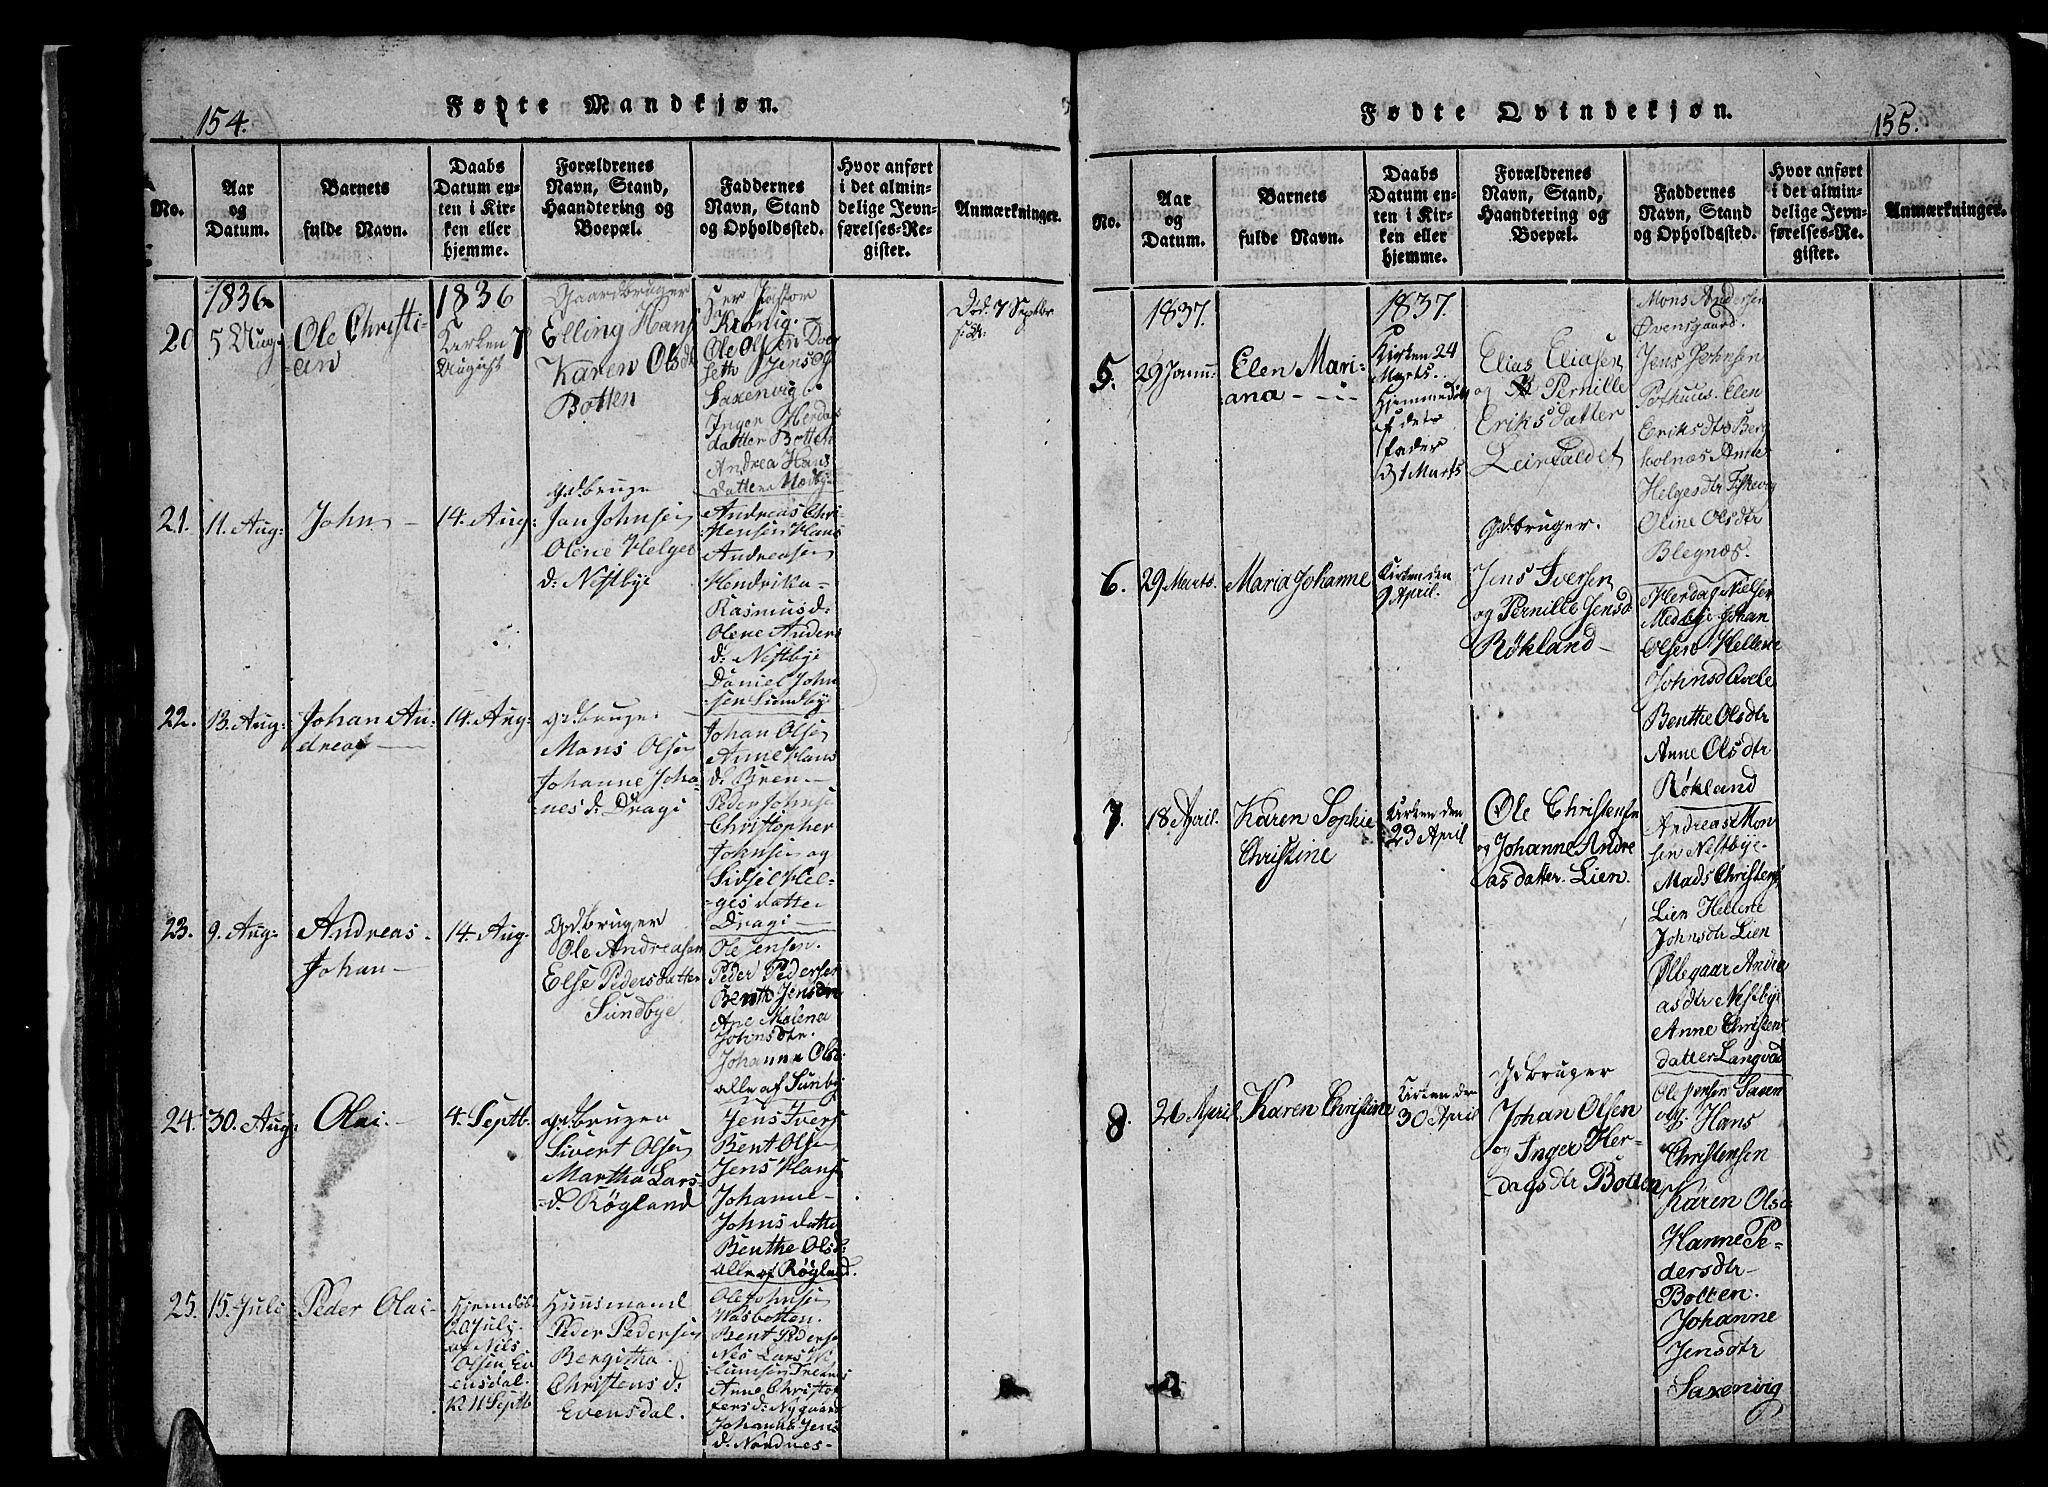 154.
Fødte Mandkjøn.
No.
Aar
og
Datum.
Barnets
fulde Navn.
Daabs
Datum en-
ten i Kir-
ken eller
hjemme.
Forældrenes
Navn, Stand,
Haandtering og
Boepæl.
Faddernes
Navn, Stand
og Opholdssted.
Hvor anført
i det almin-
delige Jevn-
førelses-Re-
gister.
Anmærkninger.
1836
20
5 Aug:
Ole Christi-
an
1836
Kirken 7
August
Gaardbruger
Elling Hans
Karen Olsdt
Botten
Her Pastor
Kønig.
Ole Olsen
Jens
Saxenvig
Inger Herdags
datter Botten
Andrea Hans
datter
Død. 7 Septbr
21.
11. Aug:
John
14. Aug:
Gdbruge
Jan Johnsen
Olene Helges
d: Nestbye
Andreas Chri-
stensen Hans
Andreasen
Hendrika
Rasmus d:
Olene Anders
d: Nestbye
Daniel John
sen Sundbye
22.
13. Aug:
Johan An-
dreas
14. Aug:
gdbruge:
Mons Olsen
Johanne Joha-
nes d: Dragi
Johan Olsen
Anne Hans
d: Bren
Peder Johnse
Christopher
Johnsen og
Sidsel Hel-
ges datte
Dragi
23.
9. Aug:
Andreas
Johan
14. Aug
Gdbruger
Ole Andreasen
Else Pedersdatter
Sundbye
Ole Jensen.
Peder Pedersen
Benth Jensdtr
Ane Malena
Johnsdtr.
Johanna Ols
alle af Sunby
24.
30. Aug:
Olai.
4. Septb.
gdbruger
Sivert Olsen
Martha Lars-
d. Røgland
Jens Ivers
Bent Olsen
Jens Hans
Johanne
Johns datte
Benthe Olsd:
alle af Røgland.
25.
15. July
Peder Olai
Hjemdøb
20 July
av Nils
Olsen Ev
ensdal.
K. 11 Septb
Huusmand
Peder Pedersen
Bergitha
Christens d:
Evensdal.
Ole Johnsen
Wasbotten.
Bent Peders
Anne Christo
fers d: Nygaard
Johanna Jens
d. Nordnes
Fødte Qvindekjøn.
155.
No.
Aar
og
Datum.
Barnets
fulde Navn.
Daabs
Datum en-
ten i Kir-
ken eller
hjemme.
Forældrenes
Navn, Stand,
Haandtering og
Boepæl.
Faddernes
Navn, Stand
og Opholdssted.
Hvor anført
i det almin-
delige Jevn-
førelses-Re-
gister.
Anmærkninger.
1837.
5.
29 Janu:
Elen Mari-
ana
1837.
Kirken 24
Marts.
Hjemmedøbt
af dets
fader
31 Marts
Elias Eliasen
og Pernille
Eriksdatter
Leirfaldet
Mons Andersen
Øvensgaard.
Jens Jensen
Pothuus. Elen
Eriksdtr Berg
Anne
Helgesdtr Fiskevog
Oline Olsdtr
Blegnæs.
6.
29 Marts.
Maria Johanne
Kirken den
9 April.
Gdbruger.
Jens Iversen
og Pernille Jensd
Røkland
Herdag Nielsen
Medbye Johan
Olsen Hellene
Johnsd Qvele
Benthe Olsdtr
Anne Olsdtr
Røkland
7.
18 April.
Karen Sophie
Christine
Kirken den
23 April
Ole Christensen
og Johanne Andre
asdatter. Lien.
Andreas Mon
sen Nestbye
Mads Christens
Lien Hellene
Johnsdtr Lien
Øllegaar Andre
asdtr Nestbye
Anne Christens
datter Langvad
8.
26 April.
Karen Christine
Kirken den
30 April
Gdbruger
Johan Olsen
og Inger Her-
dagsdtr Botten
Ole Jensen Saxen
vig. Hans
Christensen
Karen Olsd
Hanne Pe-
dersdtr
Botten.
Johanne
Jensdtr
Saxenvig